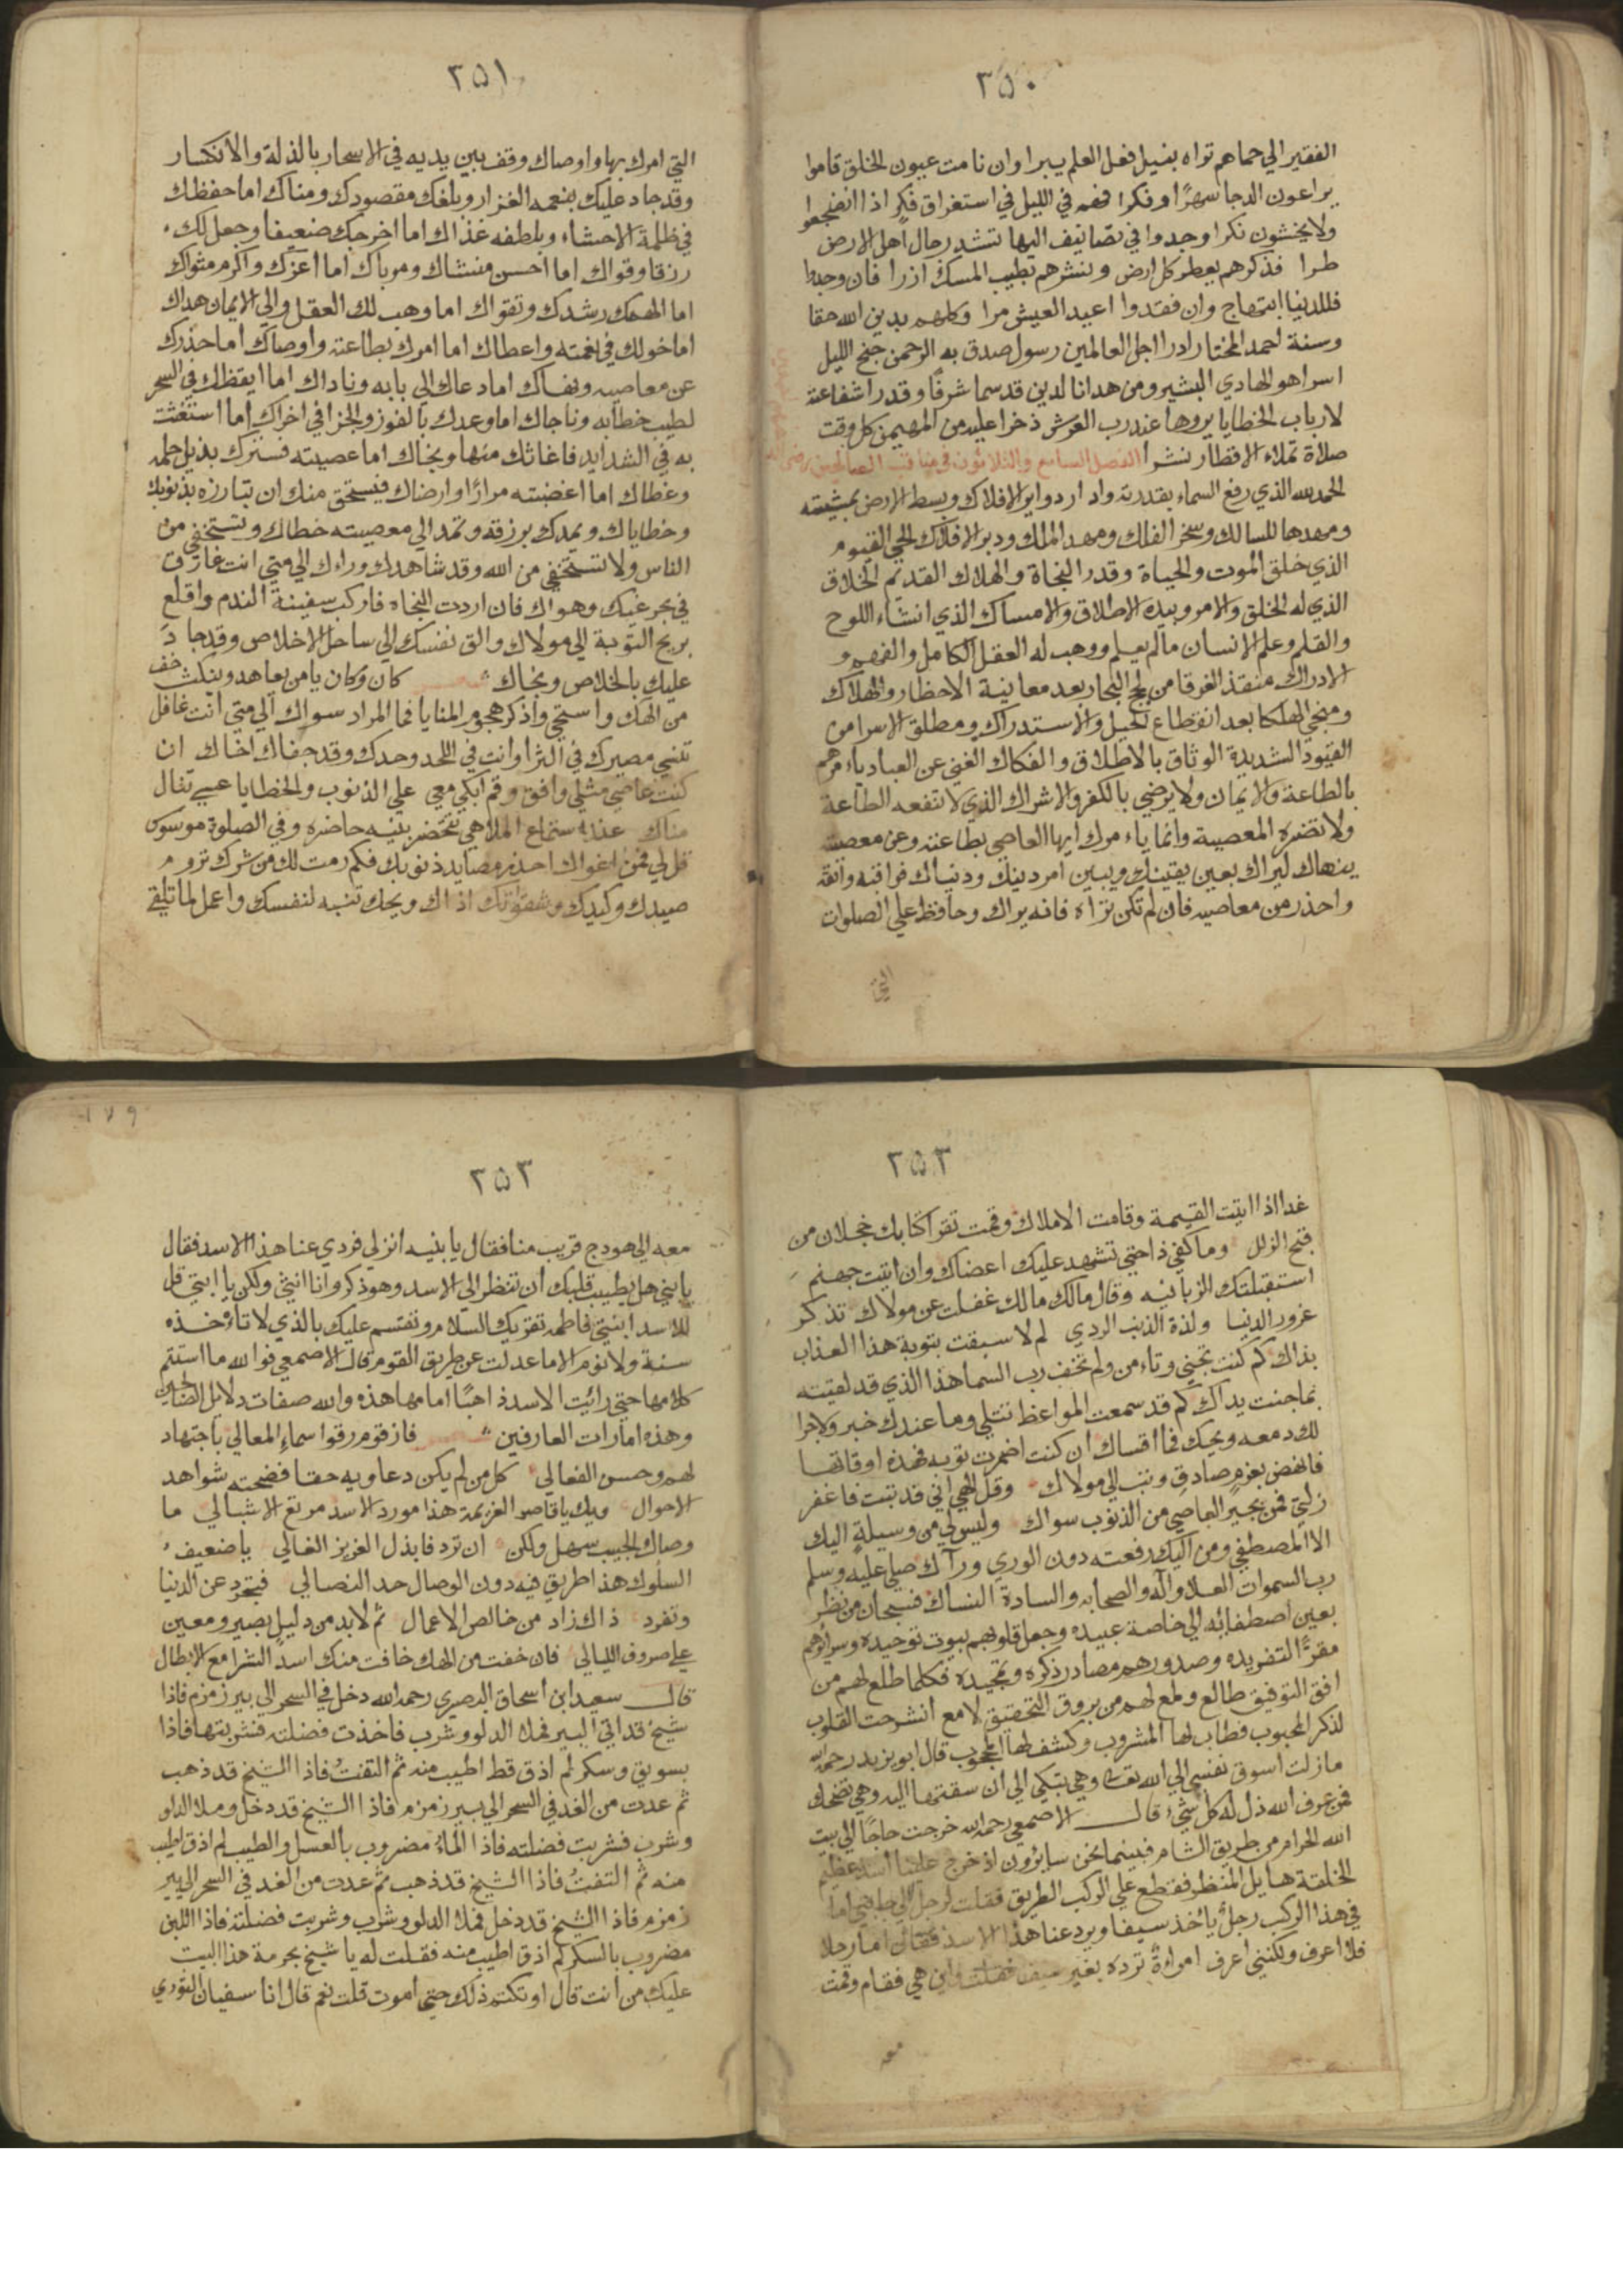 ٣٥٠
الفقير الي حماهم تراه بنيل فعل العلم يبرا وان نامت عيون الخلق قاموا
يراعون الدجا سهرًا وفكرا فهم في الليل في استغراق فكر اذا انضجعوا
ولا يخشون نكرا وجدوا في تصانيف اليها تشد رحال اهل الارض
طرا فذكرهم يعطر كل ارض وينشرهم بطيب المسك ازرا فان وجدوا
فللدنيا ابتهاج وان فقدوا اعيد العيش مرا وكلهم بدين الله حقا
وسنة احمد المختار ادرا اجل العالمين رسول صدق به الرحمن جنح الليل
اسرا هو الهادي البشير ومن هدانا لدين قد سما شرفًا وقدرا شفاعته
لارباب الخطايا يروها عند رب العرش ذخرا عليه من المهيمن كل وقت
صلاة تملاء الاقطار نشرا الفصل السابع والثلاثون في مناقب الصالحين رضي الله
الحمد لله الذي رفع السماء بقدرته وادار دواير الافلاك وبسط الارض بمشيئته
ومهدها للسالك وسخر الفلك ومهد الملك ودبر الافلاك الحي القيوم
الذي خلق الموت والحياة وقدر النجاة والهلاك القديم الخلاق
الذي له الخلق والامر وبيده الاطلاق والامساك الذي انشاء اللوح
والقلم وعلم الانسان مالم يعلم ووهب له العقل الكامل والفهم و
الادراك منقذ الغرقا من لجج البحار بعد معاينة الاخطار والهلاك
ومنجي الهلكا بعد انقطاع الحيل والاستدراك ومطلق الاسرا من
القيود الشديدة الوثاق بالاطلاق والفكاك الغني عن العباد ياءمرهم
بالطاعة والايمان ولا يرضي بالكفر والاشراك الذي لا تنفعه الطاعة
ولا تضره المعصية وانما ياءمرك ايها العاصي بطاعته وعن معصيته
ينهاك ليراك بعين يقينك ويبين امر دينك ودنياك فراقبه واتقه
واحذر من معاصيه فان لم تكن تراه فانه يراك وحافظ علي الصلوات
التي
٣٥١
التي امرك بها واوصاك وقف بين يديه في الاسحار بالذلة والانكسار
وقد جاد عليك بنعمه الغزار وبلغك مقصودك ومناك اما حفظك
في ظلمة الاحشاء وبلطفه غذاك اما اخرجك ضعيفا وجعل لك
رزقا وقواك اما احسن منشاك ومرباك اما اعزك واكرم مثواك
اما الهمك رشدك وتقواك اما وهب لك العقل والي الايمان هداك
اما خولك في نعمته واعطاك اما امرك بطاعته واوصاك اما حذرك
عن معاصيه ونهاك اما دعاك الي بابه وناداك اما ايقظك في السحر
لطيب خطابه وناجاك اما وعدك بالفوز والجزا في اخراك اما استغثت
به في الشدايد فاغاثك منها ونجاك اما عصيته فسترك بذيل حلمه
وغطاك اما اغضبته مرارًا وارضاك فيستحق منك ان تبارزه بذنوبك
وخطاياك ويمدك برزقه وتمد الي معصيته خطاك وتستخفي من
الناس ولا تستخفي من الله وقد شاهدك وراءك الي متي انت غارق
في بحر غيك وهواك فان اردت النجاه فاركب سفينة الندم واقلع
بريح التوبة الي مولاك والق نفسك الي ساحل الاخلاص وقد جاد
عليك بالخلاص ونجاك شعر كان وكان يا من يعاهد وينكث خف
من الهك واستحي واذكر هجوم المنايا فما المراد سواك الي متي انت غافل
تنسي مصيرك في الثرا وانت في اللحد وحدك وقد جفاك اخاك ان
كنت عاصي مثلي وافق وقم ابكي معي علي الذنوب والخطايا عسي تنال
مناك عند استماع الملاهي تحضر بنيه حاضره وفي الصلوة موسوس
قل لي فمن اغواك احذر مصايد ذنوبك فكم رمت لك من شرك تروم
صيدك وكيدك وشقوتك اذاك ويحك تنبه لنفسك واعمل لما تلتقي
٣٥٣
غدا اذا اتيت القيمة وقامت الاملاك وقمت تقرا كتابك خجلان من
قبح الزلل وما كفي ذا حتي تشهد عليك اعضاك وان اتيت جهنم
استقبلتك الزبانيه وقال مالك مالك غفلت عن مولاك تذكر
غرور الدنيا ولذة الذنب الردي لم لا سبقت بتوبة هذا العذاب
بذاك كم كنت تجني وتاءمن ولم تخف رب السما هذا الذي قد لقيته
بما جنت يداك كم قد سمعت المواعظ تتلي وما عندك خبر ولا جرا
لك دمعه ويحك فما اقساك ان كنت اضمرت توبه فهذه اوقاتها
فانهض بعزم صادق وتب الي مولاك وقل الهي اني قد تبت فاغفر
زلتي فمن يجير العاصي من الذنوب سواك وليس لي من وسيلة اليك
الا المصطفي ومن اليك رفعته دون الوري ورآك صلي عليه وسلم
رب السموات العلا والآله والصحابه والسادة النساك فسبحان من نظر
بعين اصطفائه الي خاصة عبيده وجعل قلوبهم بيوت توحيده وسرائرهم
مقرًا لتفريده وصدورهم مصادر ذكره وتمجيده فكلما طلع لهم من
افق التوفيق طالع ولمع لهم من بروق التحقيق لامع انشرحت القلوب
لذكر المحبوب فطاب لها المشروب وكشف لها المحجوب قال ابو يزيد رحمه الله
ما زلت اسوق نفسي الي الله تعالي وهي تبكي الي ان سقتها اليه وهي تضحك
فمن عرف الله ذل له كل شيء قال الاصمعي رحمه الله خرجت حاجًا الي بيت
الله الحرام من طريق الشام فبينما نحن سائرون اذ خرج علينا اسد عظيم
الخلقة هايل المنظر فقطع علي الركب الطريق فقلت لرجل الي جانبي اما
في هذا الركب رجل يأخذ سيفا ويرد عنا هذا الاسد فقال اما رجلا
فلا اعرف ولكنني اعرف امراءة ترده بغير سيف فقلت واين هي فقام وقمت
معه
١٧٩
٣٥٣
معه الي هودج قريب منا فقال يا بنيه انزلي فردي عنا هذا الاسد فقال
يا بني هل يطيب قلبك ان تنظر الي الاسد وهو ذكر وانا انثي ولكن يا ابتي قل
للاسد ابنتي فاطمه تقريك السلام وتقسم عليك بالذي لا تأخذه
سنة ولا نوم الا ما عدلت عن طريق القوم قال الاصمعي فوالله ما استتم
كلامها حتي رائيت الاسد ذاهبًا امامها هذه والله صفات دلائل الصالحين
وهذه امارات العارفين شعر فاز قوم رقوا سماء المعالي باجتهاد
لهم وحسن الفعالي كل من لم يكن دعاويه حقا فضحته شواهد
الاحوال ويك يا قاصر العزيمة هذا مورد الاسد مرتع الاشبالي ما
وصال الحبيب سهل ولكن ان ترد فابذل العزيز الغالي يا ضعيف
السلوك هذا طريق فيه دون الوصال حد النصالي فتجرد عن الدنيا
وتفرد ذاك زاد من خالص الاعمال ثم لابد من دليل بصير ومعين
علي صروف الليالي فان خفت من الهك خافت منك اسد الشرا مع الابطال
قال سعيد ابن اسحاق البصري رحمه الله دخل في السحر الي بير زمزم فاذا
شيخ قد اتي البير فملا الدلو وشرب فاخذت فضلته فشربتها فاذا
بسويق وسكر لم اذق قط اطيب منه ثم التفت فاذا الشيخ قد ذهب
ثم عدت من الغد في السحر الي بير زمزم فاذا الشيخ قد دخل وملا الدلو
وشرب فشربت فضلته فاذا الماء مضروب بالعسل والطيب لم اذق اطيب
منه ثم التفت فاذا الشيخ قد ذهب ثم عدت من الغد في السحر الي بير
زمزم فاذا الشيخ قد دخل فملا الدلو وشرب وشربت فضلته فاذا اللبن
مضروب بالسكر لم اذق اطيب منه فقلت له يا شيخ بحرمة هذا البيت
عليك من انت قال اوتكتم ذلك حتي اموت قلت نعم قال انا سفيان الثوري